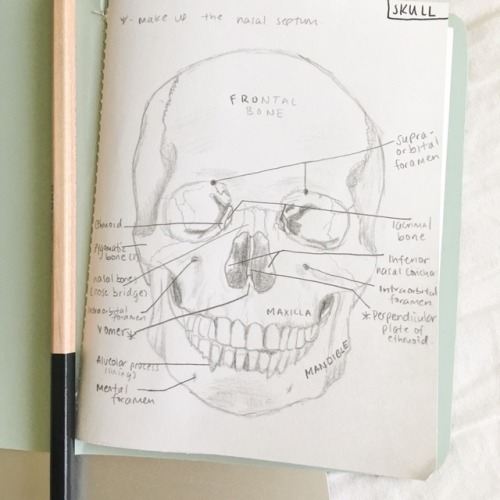 SKULL
* - make up the nasal septum.
FRONTAL
BONE
Supra-
orbital
foramen
Ethmoid
lacrimal
bone
Zygomatic
bone
Inferior
nasal concha
nasal bones
(nose bridge)
Infraorbital
foramen
Intraorbital
foramen
MAXILLA
* Perpendicular
plate of
ethmoid.
Vomer *
MANDIBLE
Alveolar process
Mental
foramen